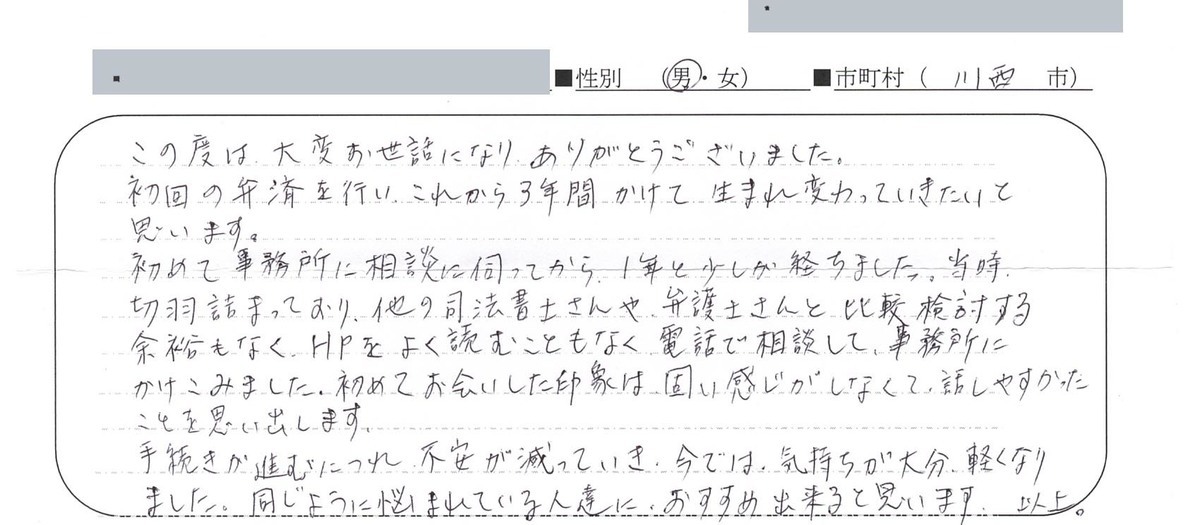 ■性別 (男・女) ■市町村 ( 川西 市)
この度は、大変お世話になり、ありがとうございました。
初回の弁済を行い、これから3年間かけて生まれ変わっていきたいと
思います。
初めて事務所に相談に伺ってから、1年と少しが経ちました。当時、
切羽詰まっており、他の司法書士さんや、弁護士さんと比較検討する
余裕もなく、HPをよく読むこともなく、電話で相談して、事務所に
かけこみました。初めてお会いした印象は、固い感じがしなくて、話しやすかった
ことを思い出します。
手続きが進むにつれ、不安が減っていき、今では、気持ちが大分、軽くなり
ました。同じように悩まれている人達に、おすすめ出来ると思います。 以上。